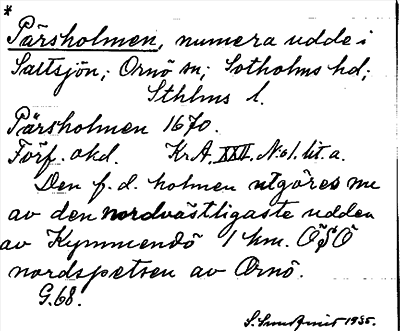 *
Pärsholmen, numera udde i
Saltsjön; Ornö sn; Sotholms hd;
Sthlms l.
Pärsholmen 1670.
Förf. okd. Kr A. XXVI. No 1. lit. a.
Den f. d. holmen utgöres nu
av den nordvästligaste udden
av Kymmendö 1 km. ÖSÖ
nordspetsen av Ornö.
G. 68.
S. 1935.